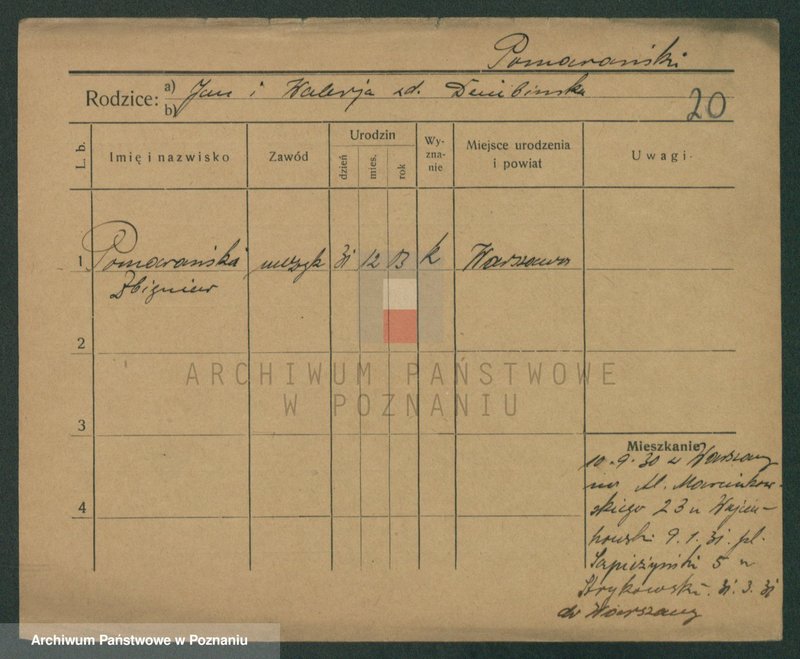 Pomarański
Rodzice: a) Jan i Walerja zd. Dembinska
b)
20
L. b.
Imię i nazwisko
Zawód
Urodzin
dzień
mies.
rok
Wy-
zna-
nie
Miejsce urodzenia
i powiat
Uwagi
1 Pomarański muzyk 31 12 13 k Warszawa
Zbigniew
2
ARCHIWUM PAŃSTWOWE
W POZNANIU
3
Mieszkanie
10.9.30 z Warszawy
Al. Marcinkow-
skiego 23 u Wojcie-
howski 9.1.31. pl.
Sapieżyński 5 u
Strykowski. 31.3.31
do Warszawy
4
Archiwum Państwowe w Poznaniu